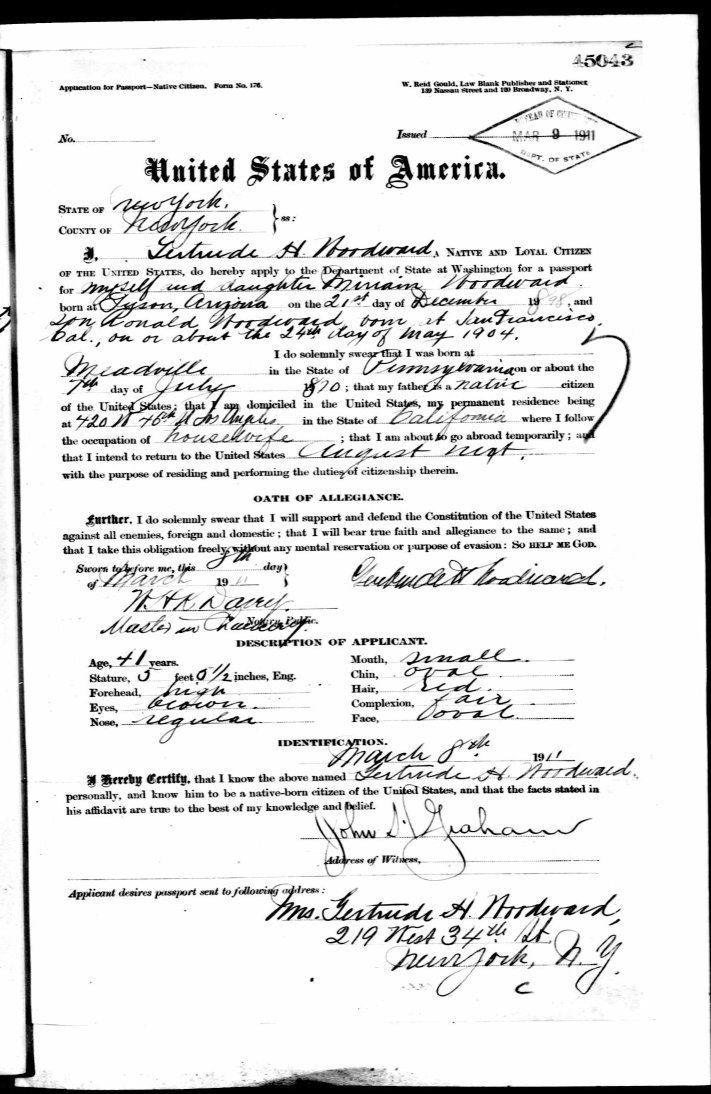 45043
Application for Passport—Native Citizen. Form No. 176.
W. Reid Gould, Law Blank Publisher and Stationer
139 Nassau Street and 199 Broadway, N. Y.
No.
Issued
MAR 9 1911
DEPT. OF STATE
United States of America.
STATE OF New York.
COUNTY OF New York. } ss:
I, Gertrude H. Woodward, A NATIVE AND LOYAL CITIZEN
OF THE UNITED STATES, do hereby apply to the Department of State at Washington for a passport
for myself and daughter Miriam Woodward.
born at Tyson, Arizona on the 21st day of December 1898, and
Son Ronald Woodward born at San Francisco,
Cal., on or about the 24th day of May 1904.
I do solemnly swear that I was born at
Meadville in the State of Pennsylvania on or about the
7th day of July 1870; that my father is a native citizen
of the United States; that I am domiciled in the United States, my permanent residence being
at 420 W 46th St Los Angeles in the State of California where I follow
the occupation of housewife; that I am about to go abroad temporarily; and
that I intend to return to the United States August next.
with the purpose of residing and performing the duties of citizenship therein.
OATH OF ALLEGIANCE.
Further, I do solemnly swear that I will support and defend the Constitution of the United States
against all enemies, foreign and domestic; that I will bear true faith and allegiance to the same; and
that I take this obligation freely, without any mental reservation or purpose of evasion: SO HELP ME GOD.
Sworn to before me, this 8th day
of March 1911
Gertrude H Woodward.
Notary Public.
Master in Chancery.
DESCRIPTION OF APPLICANT.
Age, 41 years.
Stature, 5 feet 5 1/2 inches, Eng.
Forehead, high
Eyes, brown.
Nose, regular
Mouth, small.
Chin, oval
Hair, red.
Complexion, fair
Face, oval
IDENTIFICATION.
March 8th 1911
I Hereby Certify, that I know the above named Gertrude H. Woodward.
personally, and know him to be a native-born citizen of the United States, and that the facts stated in
his affidavit are true to the best of my knowledge and belief.
John S. Graham
Address of Witness,
Applicant desires passport sent to following address:
Mrs. Gertrude H. Woodward,
219 West 34th St.
New York, N. Y.
C